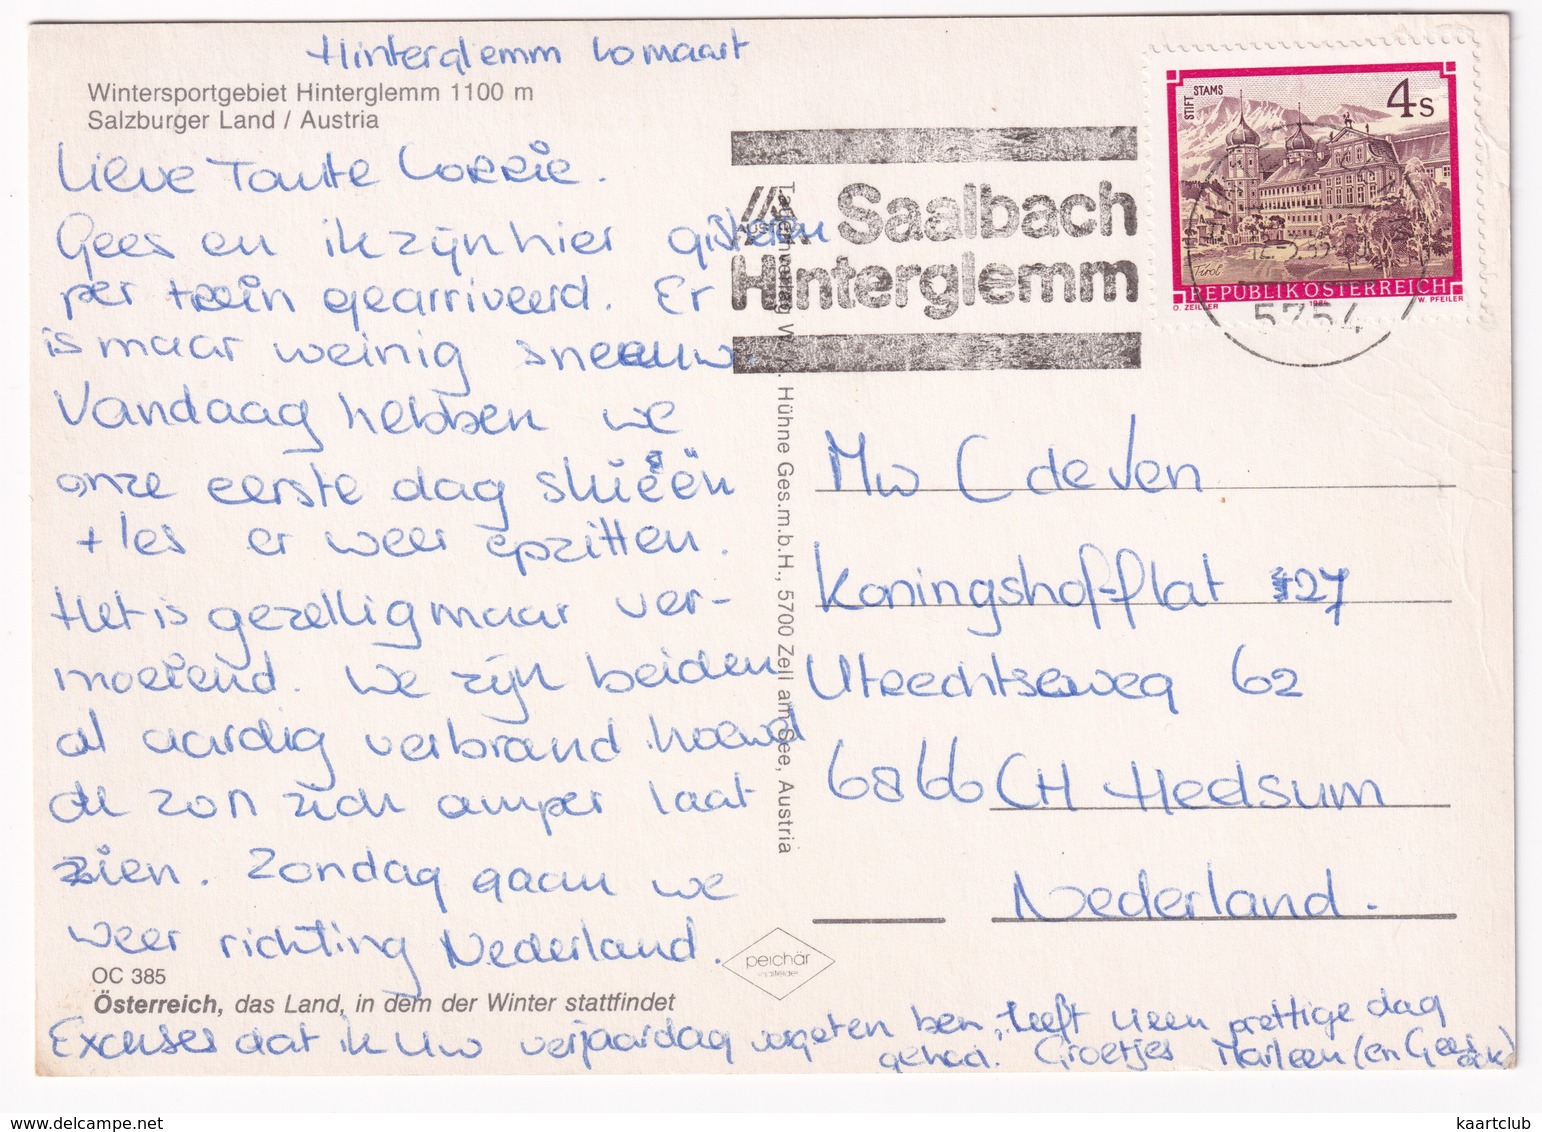 Hinterglemm 10 maart
Wintersportgebiet Hinterglemm 1100 m
Salzburger Land / Austria
Lieve Tante Corrie.
Gees en ik zijn hier gisteren
per trein gearriveerd. Er
is maar weinig sneeuw.
Vandaag hebben we
onze eerste dag skiëën
+ les er weer opzitten.
Het is gezellig maar ver-
moeiend. We zijn beiden
al aardig verbrand hoewel
de zon zich amper laat
zien. Zondag gaan we
weer richting Nederland.
OC 385
Österreich, das Land, in dem der Winter stattfindet
Excuses dat ik uw verjaardag vergeten ben, heeft u een prettige dag
gehad. Groetjes Marleen (en Gees ook)
Tagenverlag W. Hühne Ges.m.b.H., 5700 Zell am See, Austria
peichär
AUSTRIA
Saalbach
Hinterglemm
STIFT STAMS
4s
Tirol
REPUBLIK ÖSTERREICH
O. ZEILLER 1984 W. PFEILER
5754
Mw C de Ven
Koningshof-flat 127
Utrechtseweg 62
6866 CH Heelsum
Nederland.
www.delcampe.net
kaartclub